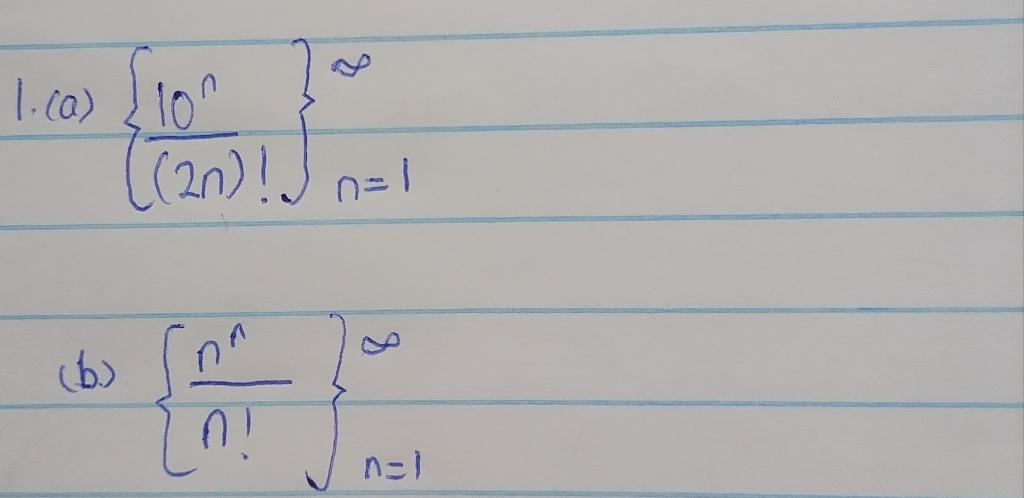 1.(a) {10ⁿ/(2n)!}^∞_{n=1}
(b) {nⁿ/n!}^∞_{n=1}